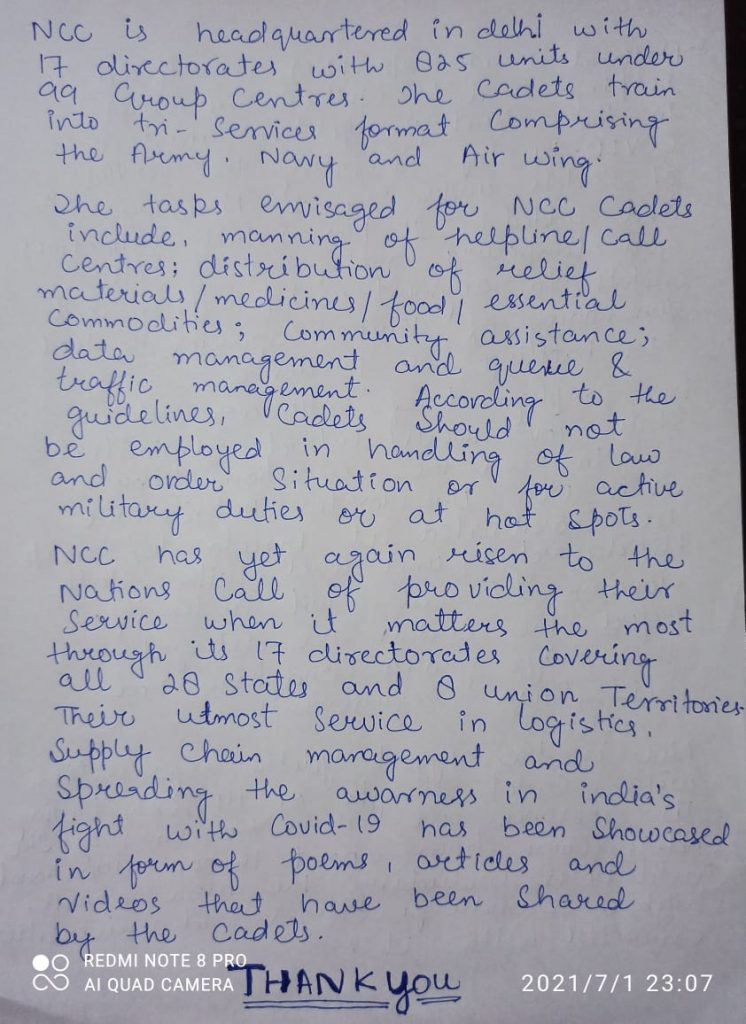 NCC is headquartered in delhi with
17 directorates with 825 units under
99 Group Centres. The Cadets train
into tri-Services format Comprising
the Army. Navy and Air wing.
The tasks envisaged for NCC Cadets
include, manning of helpline/Call
Centres; distribution of relief
materials/medicines/food/ essential
Commodities; Community assistance;
data management and queue &
traffic management. According to the
guidelines, Cadets Should not
be employed in handling of law
and order Situation or for active
military duties or at hot spots.
NCC has yet again risen to the
Nations Call of providing their
Service when it matters the most
through its 17 directorates Covering
all 28 States and 8 union Territories.
Their utmost Service in logistics,
Supply Chain management and
Spreading the awarness in india's
fight with Covid-19 has been Showcased
in form of poems, articles and
videos that have been Shared
by the Cadets.
THANK you
REDMI NOTE 8 PRO
AI QUAD CAMERA
2021/7/1 23:07